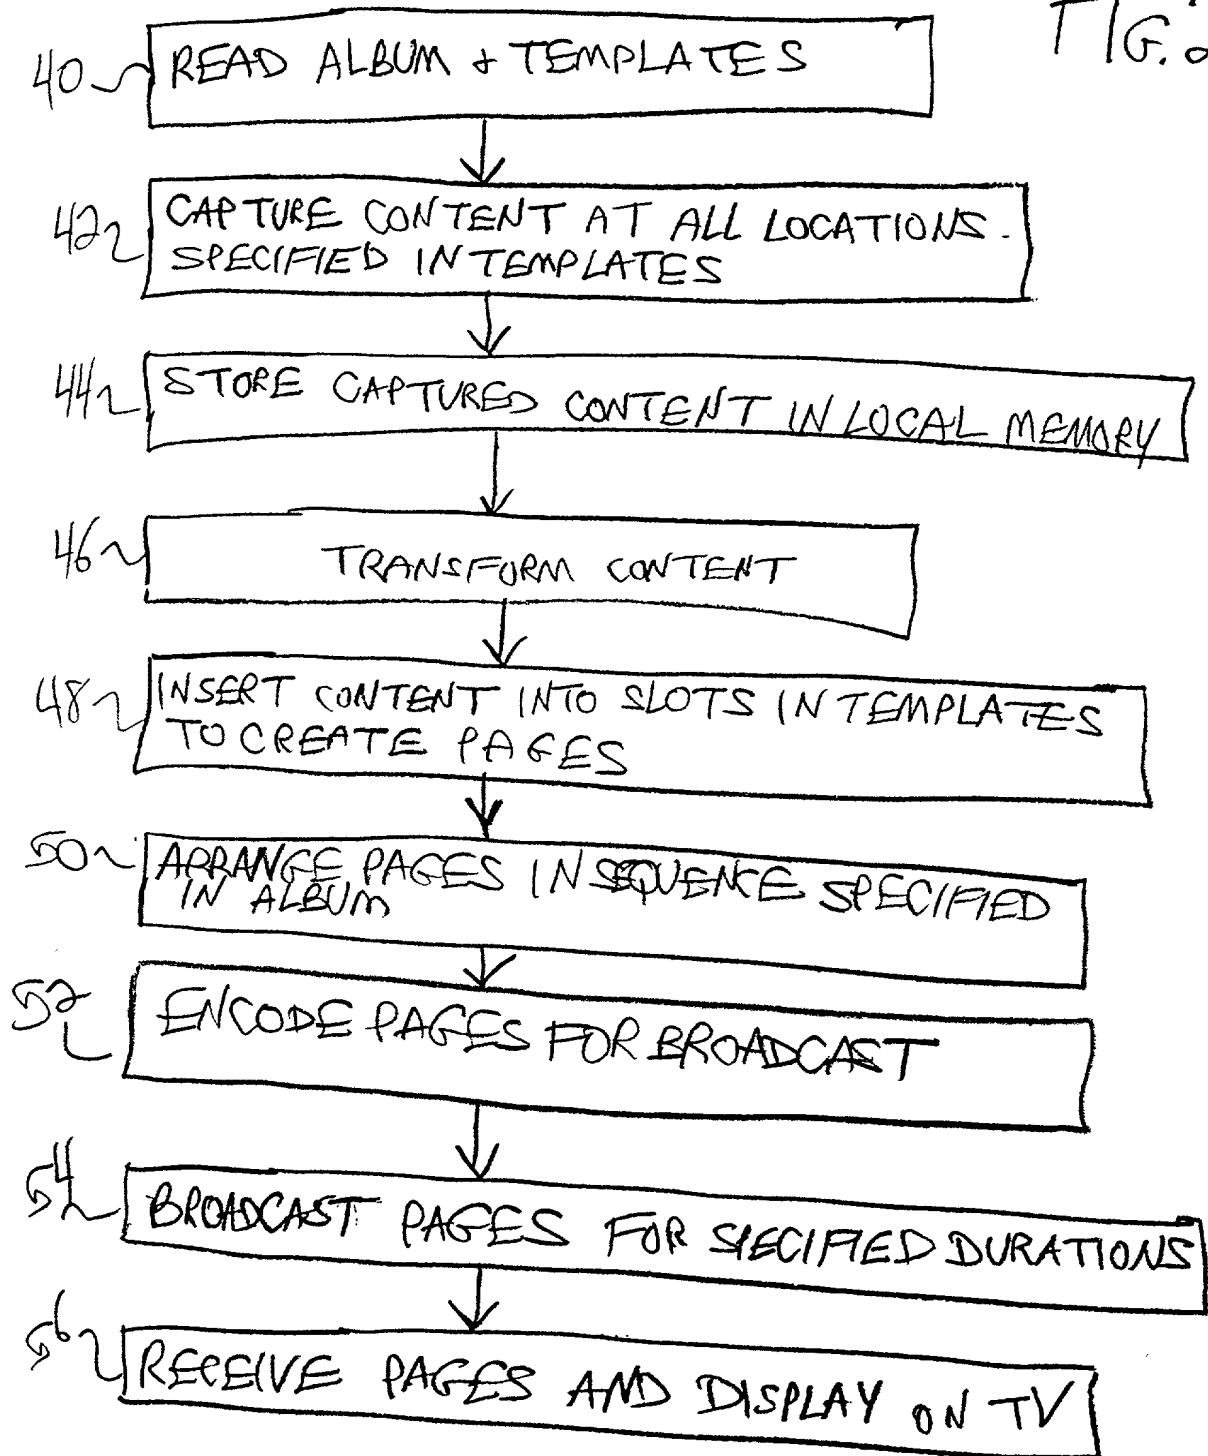 FIG.
40 READ ALBUM & TEMPLATES
42 CAPTURE CONTENT AT ALL LOCATIONS.
SPECIFIED IN TEMPLATES
44 STORE CAPTURED CONTENT IN LOCAL MEMORY
46 TRANSFORM CONTENT
48 INSERT CONTENT INTO SLOTS IN TEMPLATES
TO CREATE PAGES
50 ARRANGE PAGES IN SEQUENCE SPECIFIED
IN ALBUM
52 ENCODE PAGES FOR BROADCAST
54 BROADCAST PAGES FOR SPECIFIED DURATIONS
56 RECEIVE PAGES AND DISPLAY ON TV